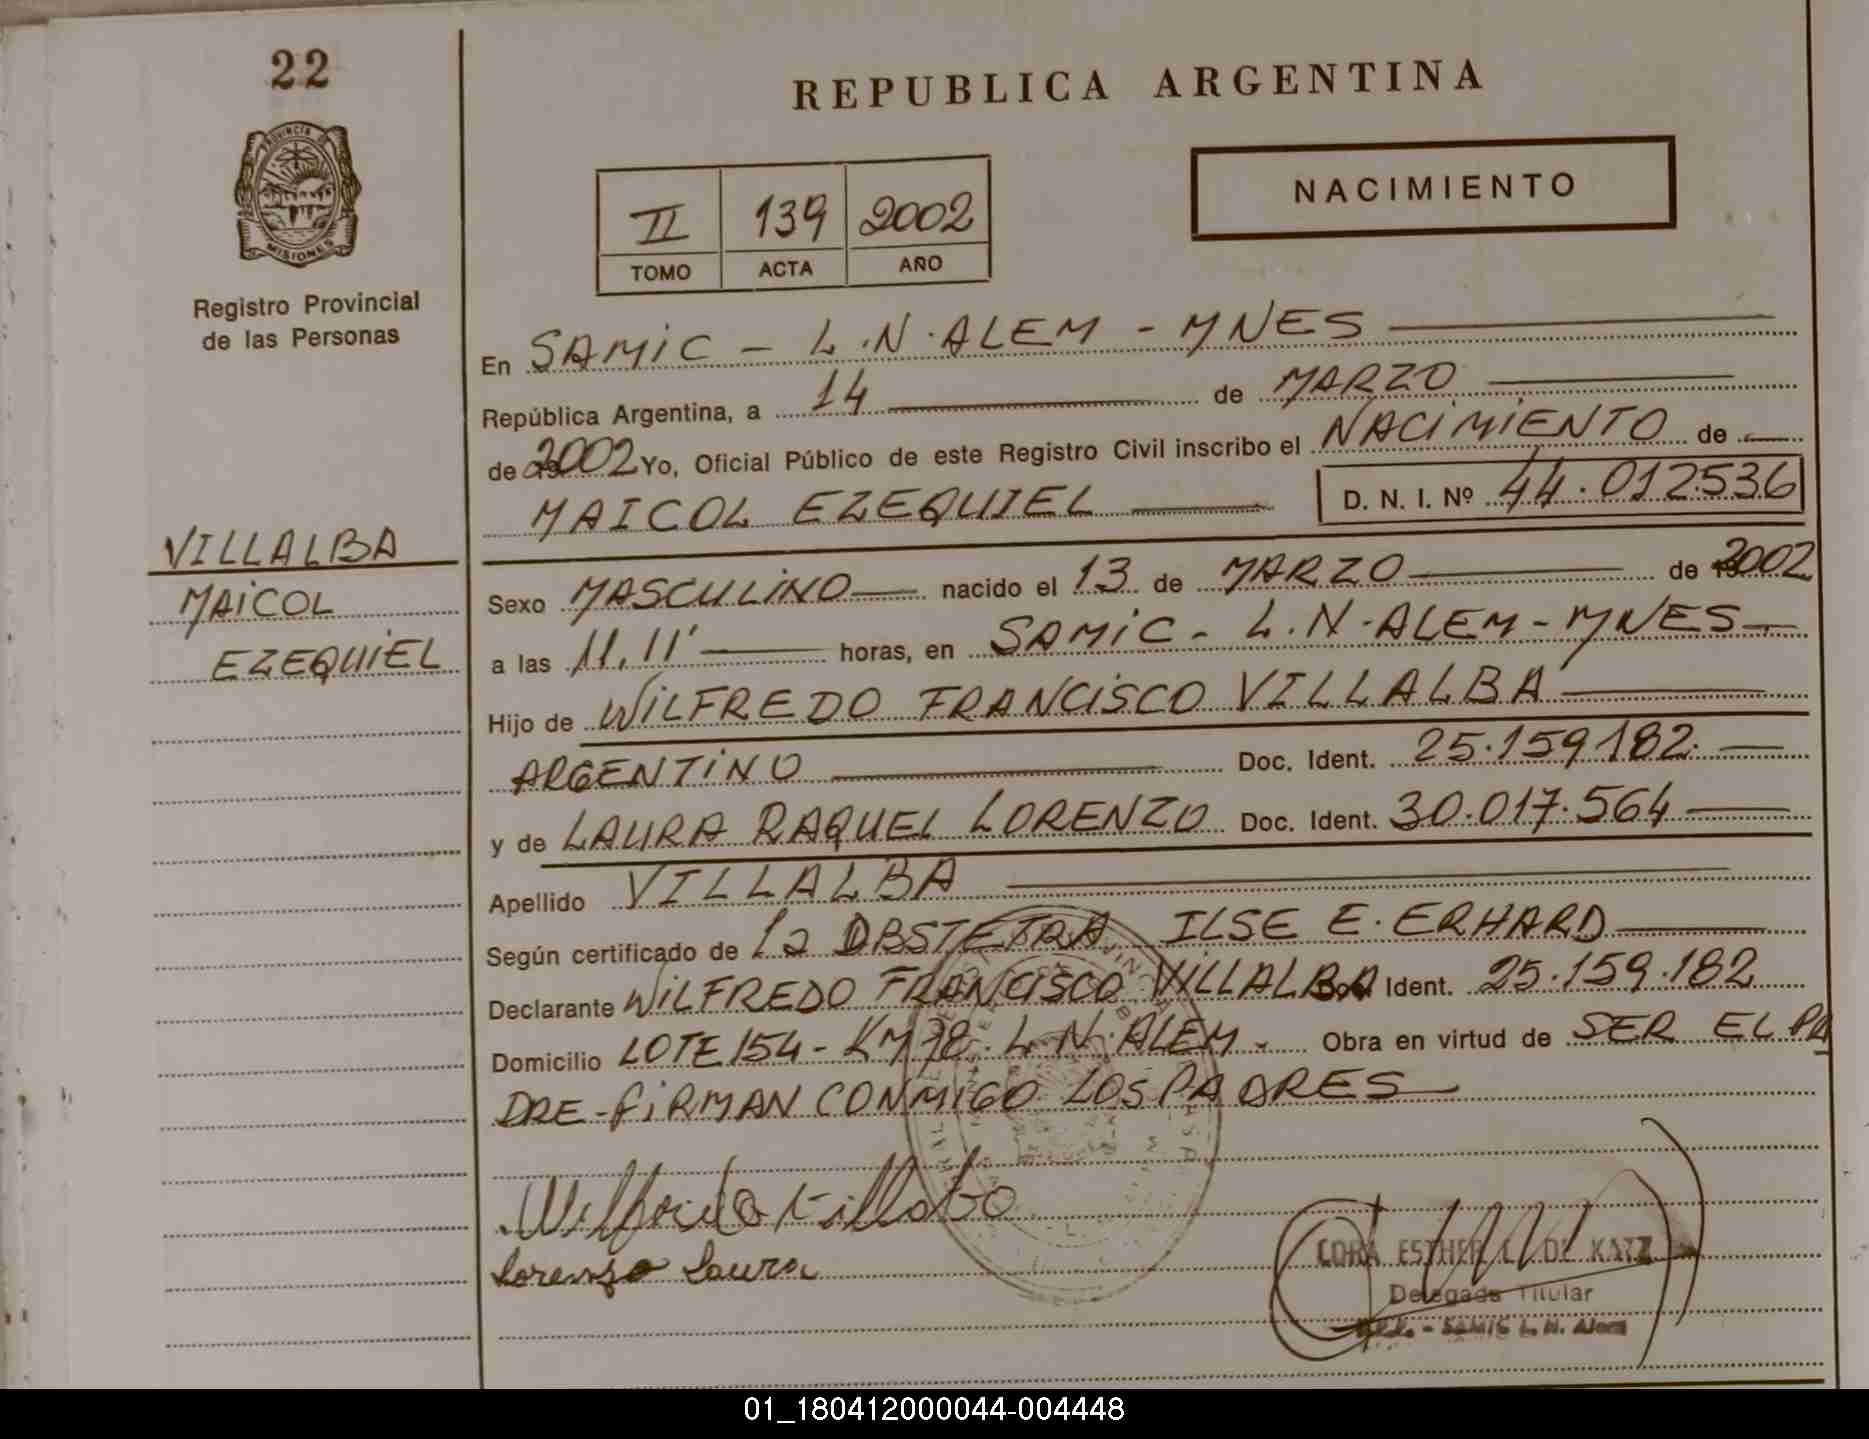 22
PROVINCIA DE
MISIONES
Registro Provincial
de las Personas
VILLALBA
MAICOL
EZEQUIEL
REPUBLICA ARGENTINA
NACIMIENTO
II 139 2002
TOMO ACTA AÑO
En SAMIC - L.N.ALEM - MNES
República Argentina, a 14 de MARZO
de 2002 Yo, Oficial Público de este Registro Civil inscribo el NACIMIENTO de
MAICOL EZEQUIEL D. N. I. Nº 44.012536
Sexo MASCULINO nacido el 13 de MARZO de 2002
a las 11.11' horas, en SAMIC - L.N.ALEM - MNES
Hijo de WILFREDO FRANCISCO VILLALBA
ARGENTINO Doc. Ident. 25.159.182.
y de LAURA RAQUEL LORENZO Doc. Ident. 30.017.564
Apellido VILLALBA
Según certificado de la OBSTETRA ILSE E. ERHARD
Declarante WILFREDO FRANCISCO VILLALBA Doc. Ident. 25.159.182
Domicilio LOTE 154 - KM 78. L.N.ALEM - Obra en virtud de SER EL PA
DRE - FIRMAN CONMIGO LOS PADRES
Lorenzo Laura
CORA ESTHER L. DE KATZ
Delegada Titular
SAMIC L. N. Alem
01_180412000044-004448